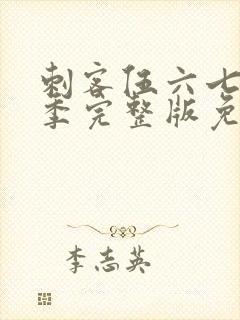 刺客伍六七
季完整版免
李志英